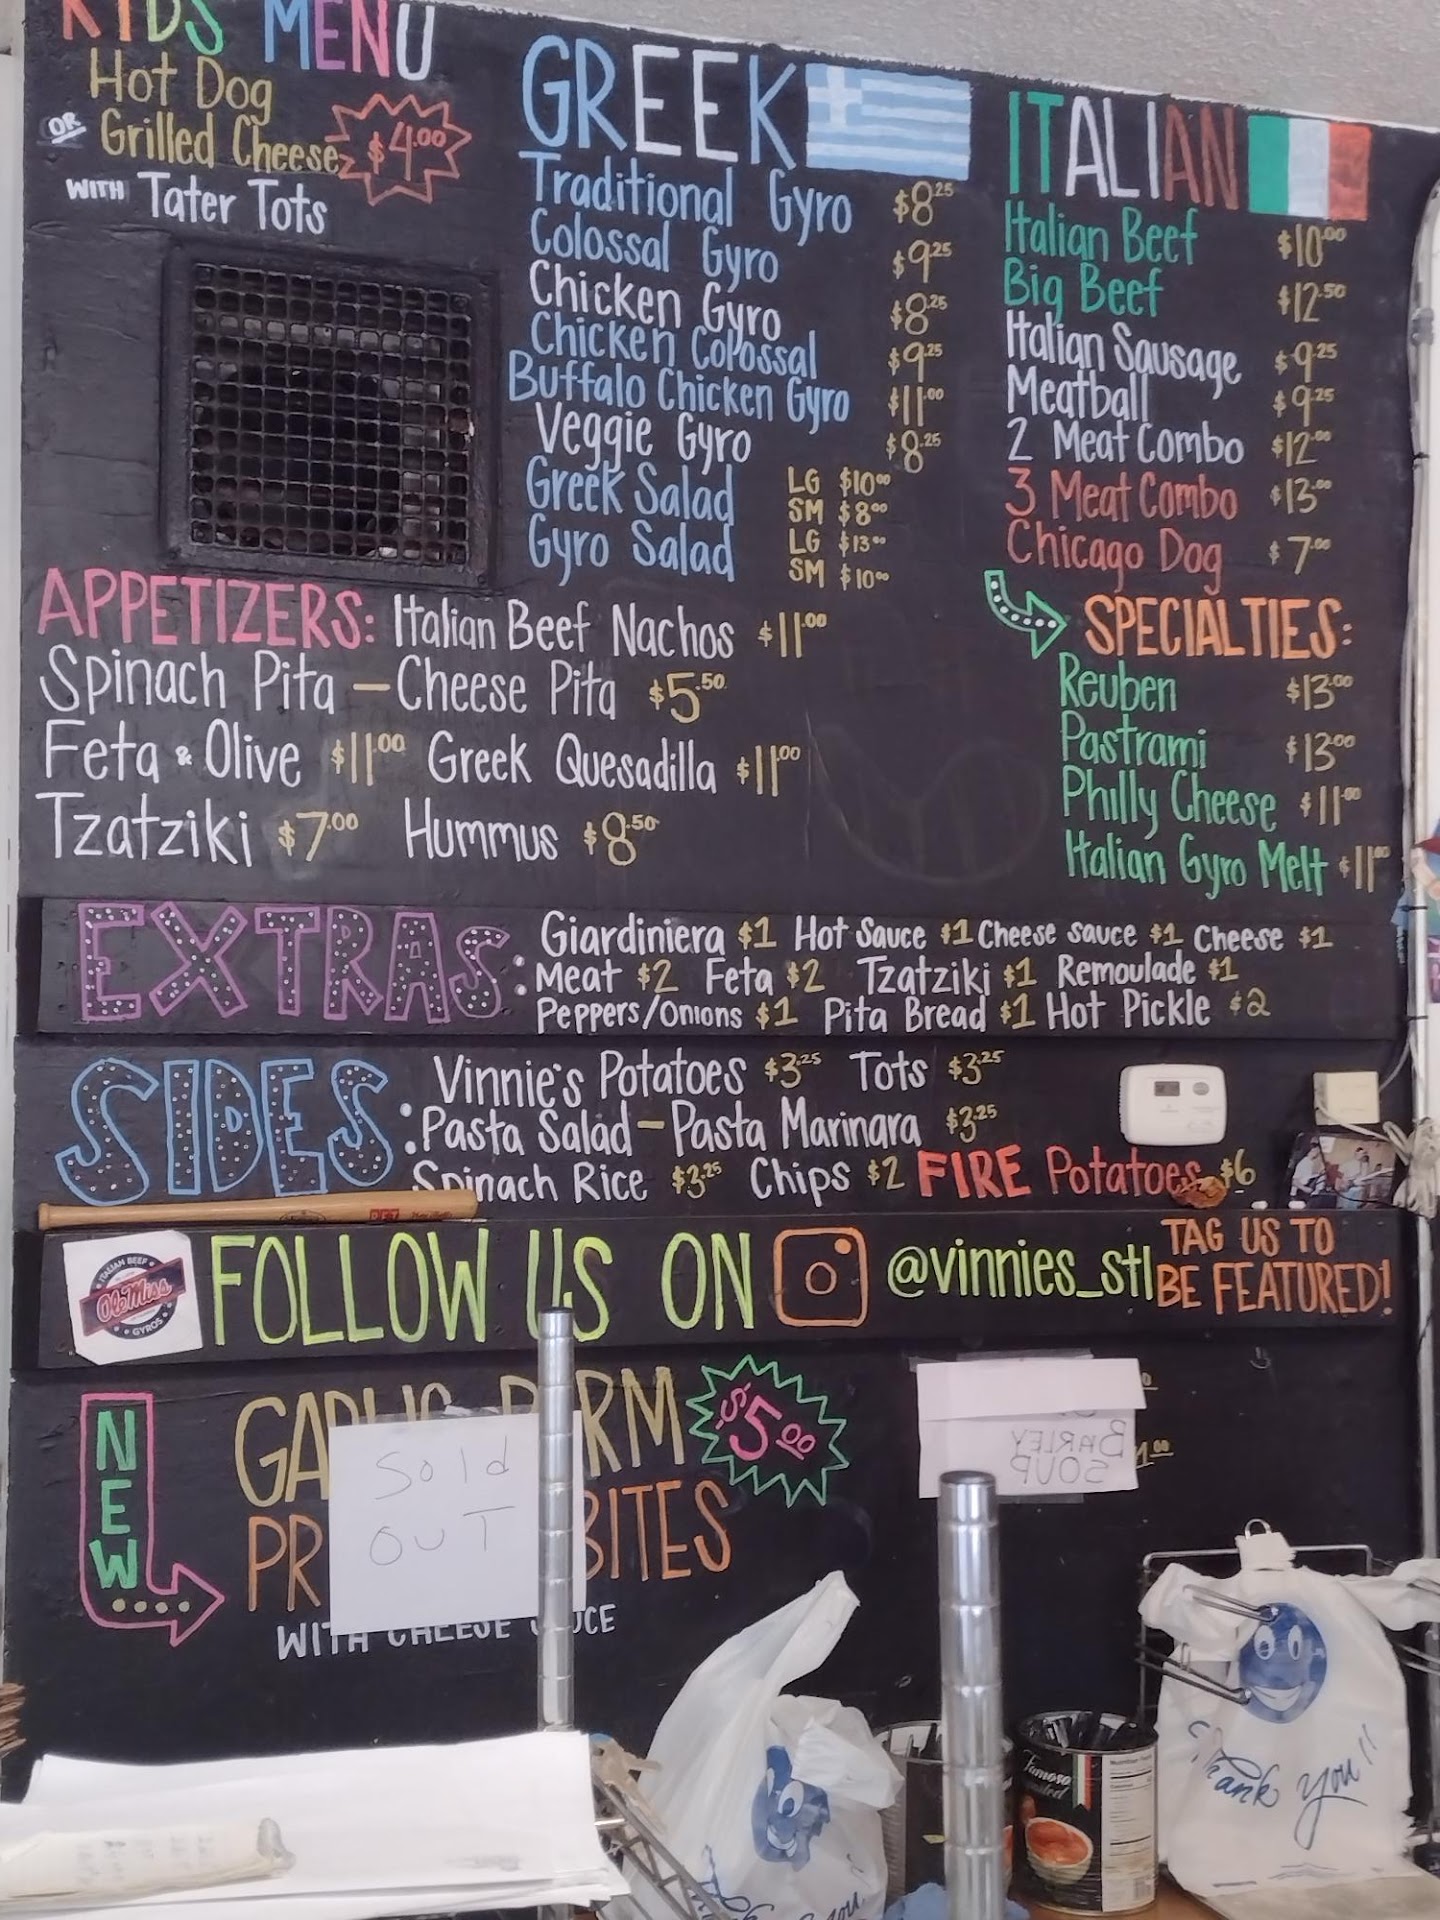 KIDS MENU
Hot Dog
OR Grilled Cheese $4.00
WITH Tater Tots
GREEK
Traditional Gyro $8.25
Colossal Gyro $9.25
Chicken Gyro $8.25
Chicken Colossal $9.25
Buffalo Chicken Gyro $11.00
Veggie Gyro $8.25
Greek Salad LG $10.00
SM $8.00
Gyro Salad LG $13.00
SM $10.00
ITALIAN
Italian Beef $10.00
Big Beef $12.50
Italian Sausage $9.25
Meatball $9.25
2 Meat Combo $12.00
3 Meat Combo $13.00
Chicago Dog $7.00
SPECIALTIES:
Reuben $13.00
Pastrami $13.00
Philly Cheese $11.00
Italian Gyro Melt $11.00
APPETIZERS: Italian Beef Nachos $11.00
Spinach Pita — Cheese Pita $5.50
Feta & Olive $11.00 Greek Quesadilla $11.00
Tzatziki $7.00 Hummus $8.50
EXTRAS: Giardiniera $1 Hot Sauce $1 Cheese sauce $1 Cheese $1
Meat $2 Feta $2 Tzatziki $1 Remoulade $1
Peppers/Onions $1 Pita Bread $1 Hot Pickle $2
SIDES: Vinnie's Potatoes $3.25 Tots $3.25
Pasta Salad — Pasta Marinara $3.25
Spinach Rice $3.25 Chips $2 FIRE Potatoes $6
ITALIAN BEEF
Ole Miss
GYROS
FOLLOW US ON @vinnies_stl TAG US TO
BE FEATURED!
NEW
GARLIC PARM $5.00
BITES
WITH CHEESE SAUCE
Sold
OUT
BARLEY
SOUP
Famoso
Thank you!!